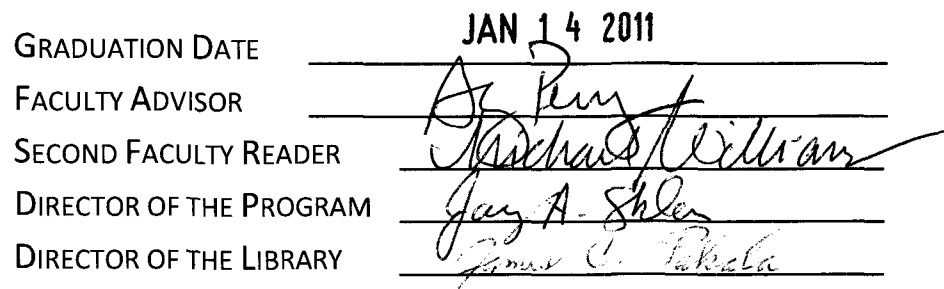 GRADUATION DATE JAN 14 2011
FACULTY ADVISOR Perry
SECOND FACULTY READER Michael Williams
DIRECTOR OF THE PROGRAM Jay A. Sklar
DIRECTOR OF THE LIBRARY James C. Pakala